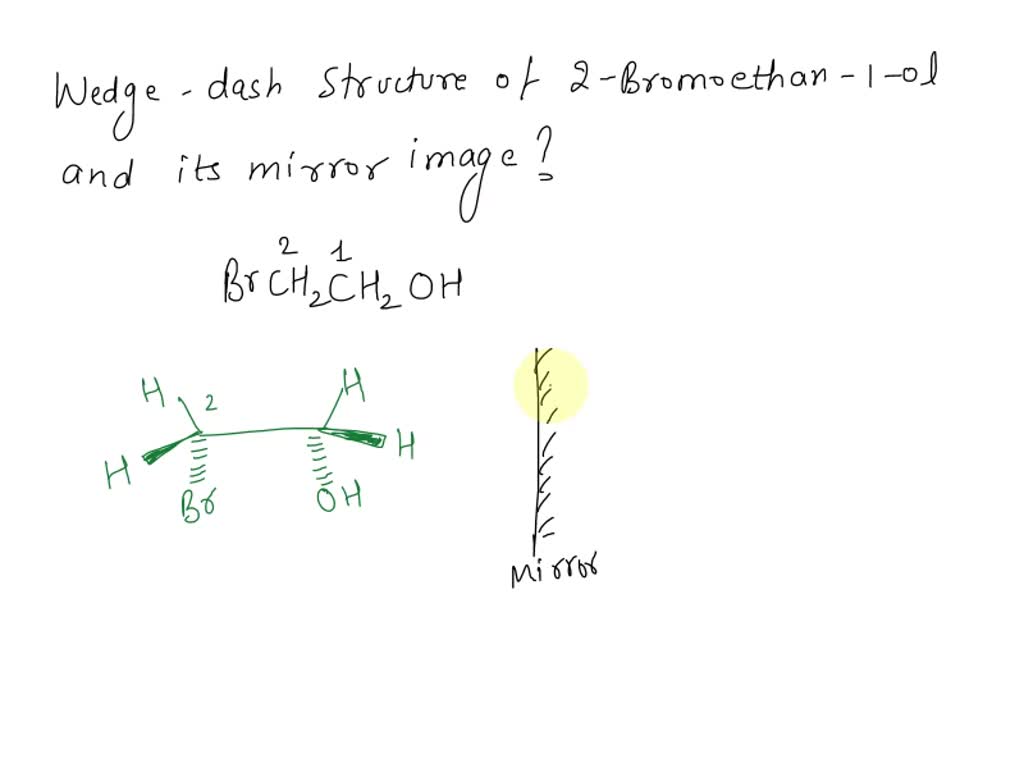 Wedge - dash Structure of 2-Bromoethan-1-ol
and its mirror image?
2 1
BrCH2CH2OH
H 2 H
H H
Br OH
Mirror